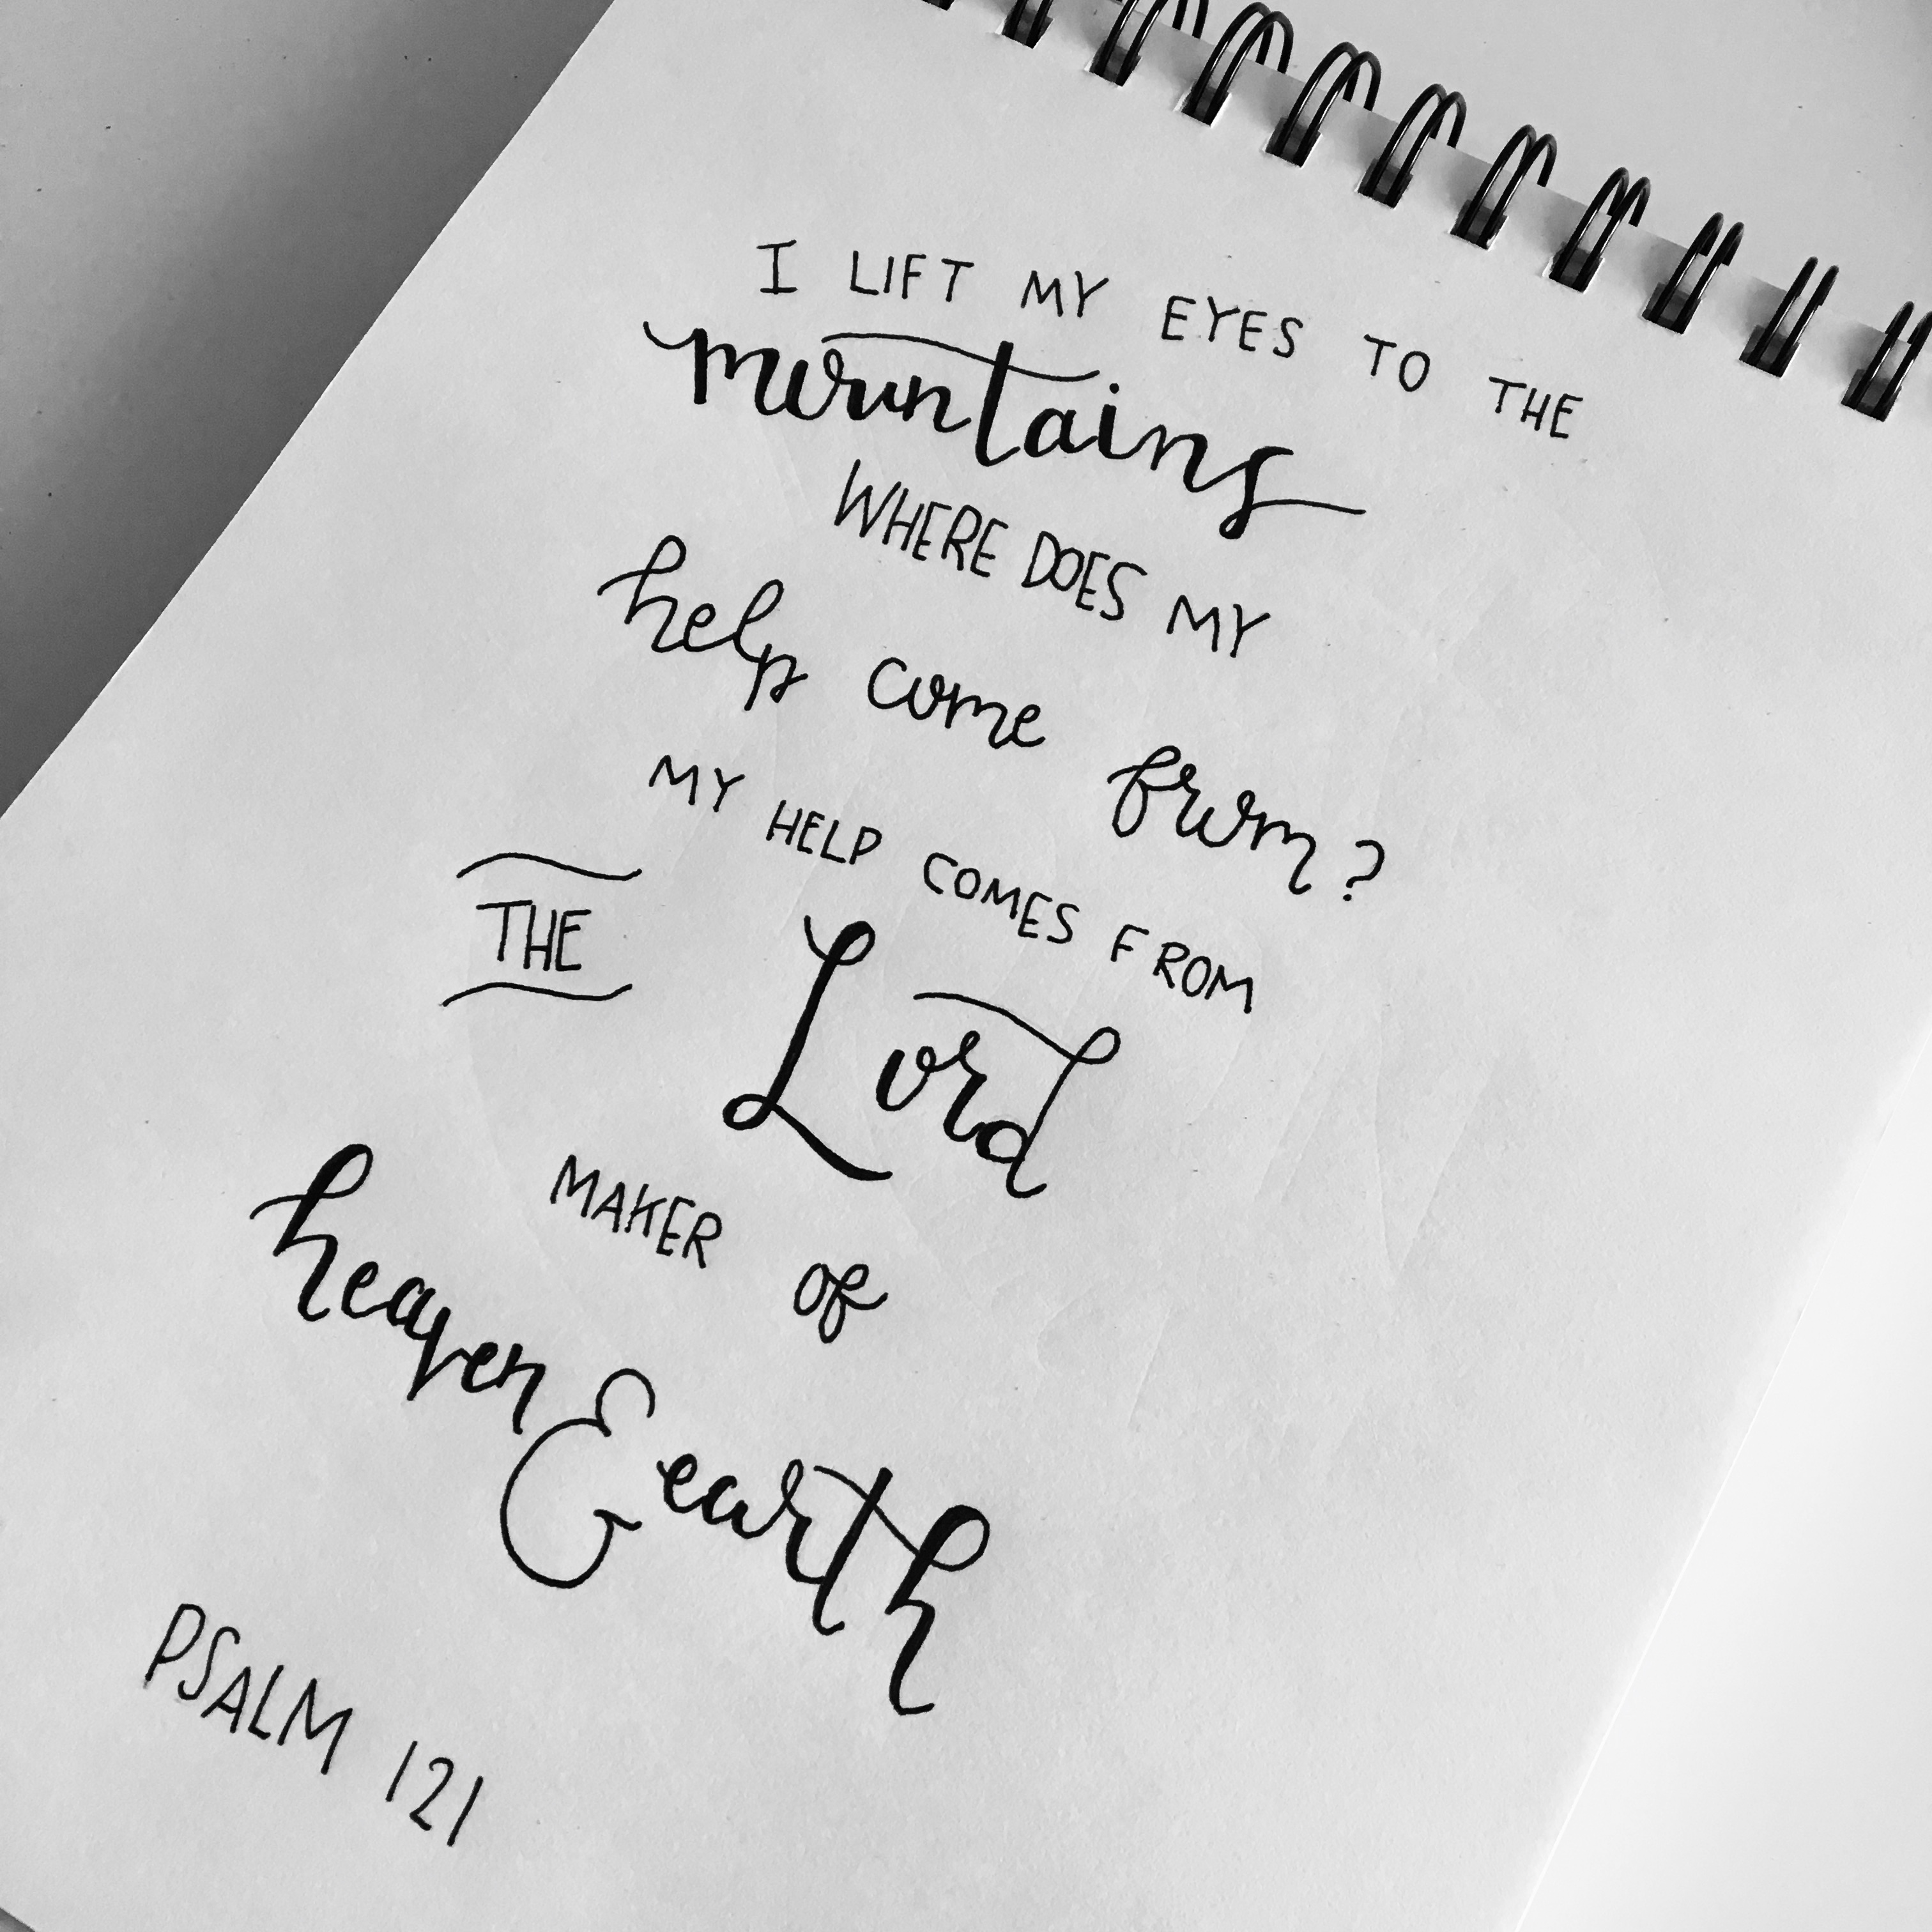 I LIFT MY EYES TO THE
mountains
WHERE DOES MY
help come from?
MY HELP COMES FROM
THE Lord
MAKER of
heaven & earth
PSALM 121